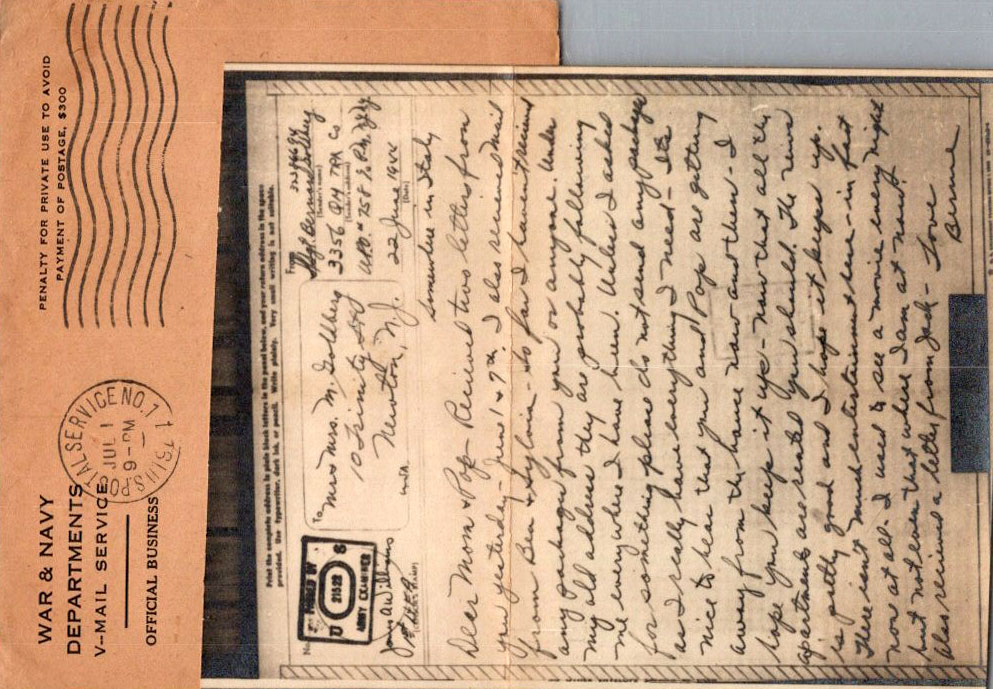 WAR & NAVY
DEPARTMENTS
V-MAIL SERVICE
OFFICIAL BUSINESS
U.S. POSTAL SERVICE NO. 1
JUL 1
9-PM
PENALTY FOR PRIVATE USE TO AVOID
PAYMENT OF POSTAGE, $300
Print the complete address in plain block letters in the panel below, and your return address in the space
provided. Use typewriter, dark ink, or pencil. Write plainly. Very small writing is not suitable.
No.
PASSED BY
U S
ARMY EXAMINER
To
Mr + Mrs. M. Goldberg
10 Trinity
Newton, N.J.
USA
From
Sgt. Bernie Goldberg
(Sender's name)
3356 QM TRK Co
(Sender's address)
APO # 758 % P.M. NY
22 June 1944
(Date)
Somewhere in Italy
Dear Mom & Pop - Received two letters from
you yesterday - June 1 & 7th. I also received mail
from Ben & Sylvia - So far I haven't received
any packages from you or anyone. Under
my old address they are probably following
me everywhere I have been. Unless I asked
for something please do not send any packages
as I really have everything I need - It's
nice to hear that you and Pop are getting
away from the house now and then - I
hope you keep it up - now that all the
apartments are rented you should. The news
is pretty good and I hope it keeps up.
There isn't much entertainment here - in fact
none at all. I used to see a movie every night
but not even that where I am at now.
Also received a letter from Jack -
Love
Bernie